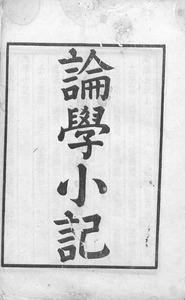 論學小記